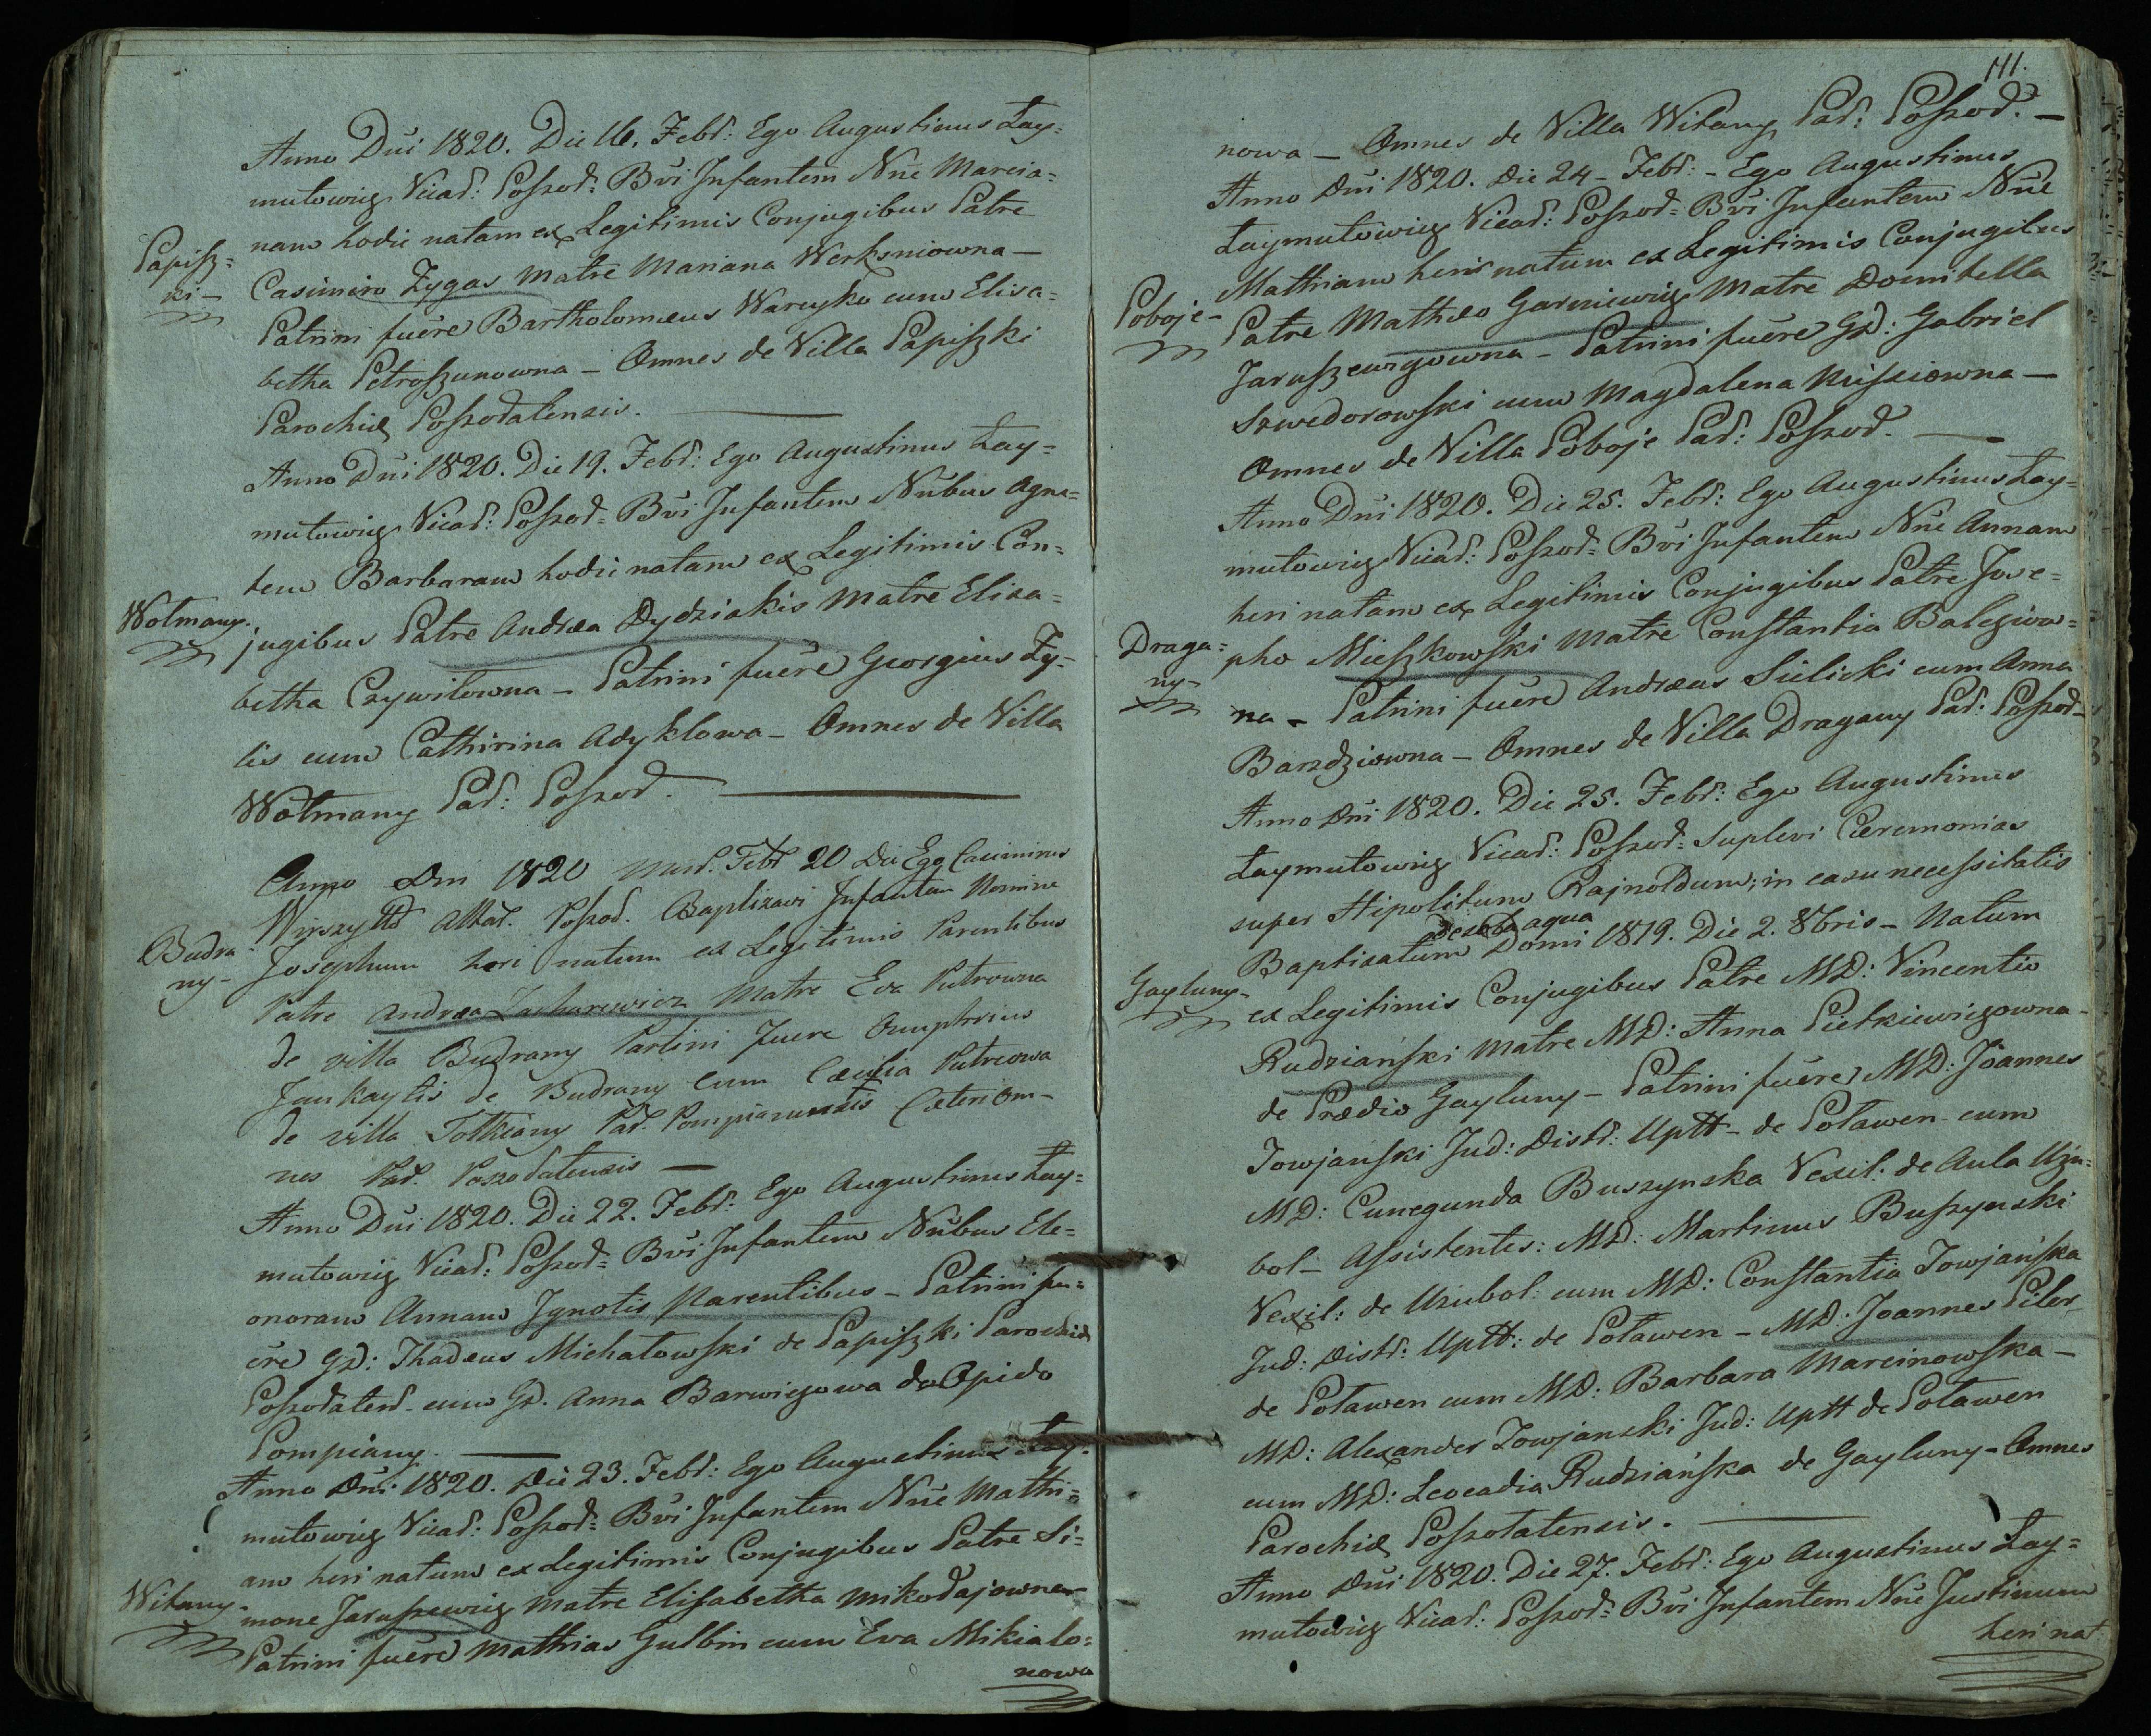 Anno Dni 1820. Die 16. Febr: Ego Augustinus Łay=
mutowicz Vicar: Poszod= Bvi Infantem Nne Marcia=
nam hodie natam ex Legitimis Conjugibus Patre
Papisz=
ki –
Casimiro Zygas Matre Mariana Werksniowna –
Patrini fuere Bartholomæus Warcyko cum Elisa=
betha Petroszunowna – Omnes de Villa Papiszki
Parochiæ Poszodatensis.
Anno Dni 1820. Die 19. Febr: Ego Augustinus Łay=
mutowicz Vicar: Poszod= Bvi Infantem Nnbus Agne=
tem Barbaram hodie natam ex Legitimis Con=
Wotmany.
jugibus Patre Andrea Dydziakis Matre Elisa=
betha Czywilowna – Patrini fuere Georgius Zy=
lis cum Catharina Adyklowa – Omnes de Villa
Wotmany Par: Poszod.
Anno Dni 1820 Mens. Febr 20 Die Ego Casimirus
Wirszyłło Altar. Poszod. Baptizavi Infantem Nomine
Budra
ny –
Josephum heri natum ex Legitimis Parentibus
Patre Andrea Zacharewicz Matre Eva Putrowna
de villa Budrany Patrini Fuere Onuphrius
Jankaytis de Budrany cum Cæcilia Putrowa
de villa Tolkiany Par. Pompianensis Cæteri Om-
nes Par. Poszodatensis –
Anno Dni 1820. Die 22. Febr: Ego Augustinus Łay=
mutowicz Vicar: Poszod= Bvi Infantem Nnbus Ele=
onoram Annam Ignotis Parentibus – Patrini fu=
ere GD: Thadeus Michałowski de Papiszki Parochiæ
Poszodatens. cum GD. Anna Barwiczowa de Opido
Pompiany.
Anno Dni 1820. Die 23. Febr: Ego Augustinus Łay=
mutowicz Vicar: Poszod= Bvi Infantem Nne Mathi=
am heri natum ex Legitimis Conjugibus Patre Si=
Witany.
mone Jaruszewicz Matre Elisabetha Mikołajowna –
Patrini fuere Mathias Gulbin cum Eva Mikialo=
nowa
111.
nowa – Omnes de Villa Witany Par: Poszod. –
Anno Dni 1820. Die 24 – Febr: – Ego Augustinus
Łaymutowicz Vicar: Poszod= Bvi Infantem Nne
Mathiam heri natum ex Legitimis Conjugibus
Poboje –
Patre Mathæo Garniewicz Matre Domitella
Jaruszewiczowna – Patrini fuere GD: Gabriel
Szwedorowski cum Magdalena Kriszciowna –
Omnes de Villa Poboje Par: Poszod.
Anno Dni 1820. Die 25. Febr: Ego Augustinus Łay=
mutowicz Vicar: Poszod= Bvi Infantem Nne Annam
heri natam ex Legitimis Conjugibus Patre Jose=
Draga=
ny –
pho Mieszkowski Matre Constantia Balcziow=
na – Patrini fuere Andreas Sielicki cum Anna
Barzdziowna – Omnes de Villa Dragany Par: Poszod –
Anno Dni 1820. Die 25. Febr: Ego Augustinus
Łaymutowicz Vicar: Poszod= Suplevi Cæremonias
super Hipolitum Rajnoldum, in casu necessitatis
de sola aqua
Baptisatum Domi 1819. Die 2. 8bris – Natum
Gayluny –
ex Legitimis Conjugibus Patre MD: Vincentio
Rudziański Matre MD: Anna Pietkiewiczowna –
de Prædio Gayluny – Patrini fuere MD: Joannes
Towjański Jud: Distr: Uptt – de Poławen – cum
MD: Cunegunda Buszynska Vexil: de Aula Uzu=
bol – Assistentes: MD: Martinus Buszynski
Vexil: de Uzubol: cum MD: Constantia Towjańska
Jud: Distr: Uptt: de Poławen – MD: Joannes Piler
de Poławen cum MD: Barbara Marcinowska –
MD: Alexander Towjanski Jud: Uptt de Poławen
cum MD: Leocadia Rudziańska de Gayluny – Omnes
Parochiæ Poszotatensis.
Anno Dni 1820. Die 27. Febr: Ego Augustinus Łay=
mutowicz Vicar: Poszod= Bvi Infantem Nne Justinum
heri nat